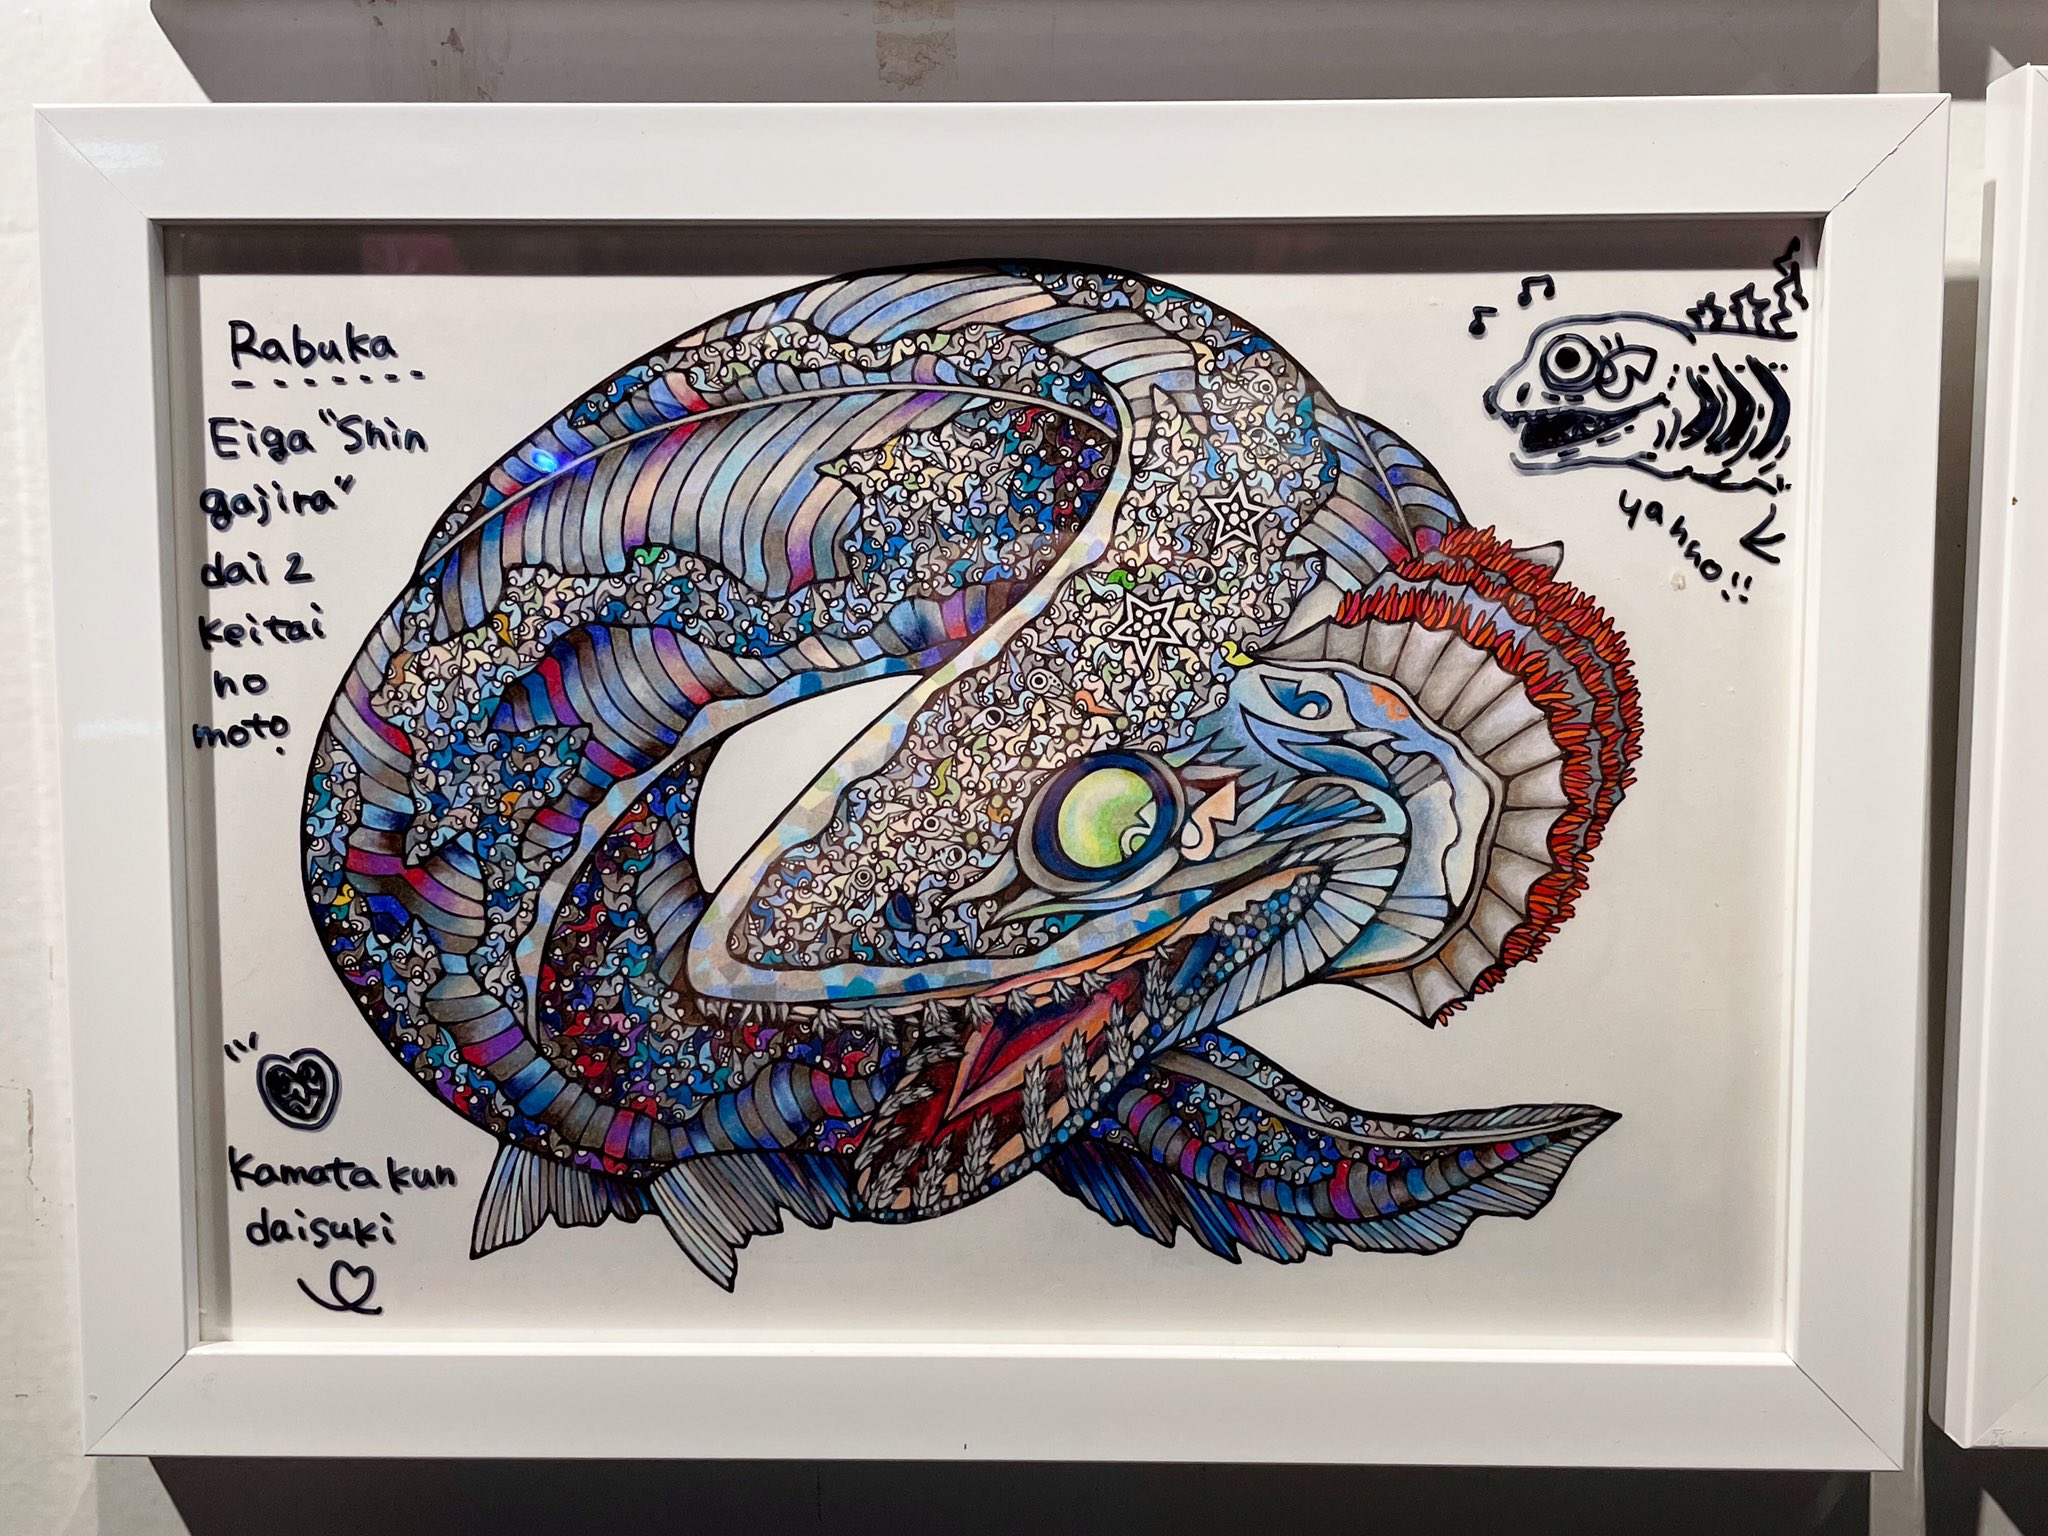 Rabuka
Eiga "Shin
gajira"
dai 2
keitai
no
moto.
Kamata kun
daisuki
yahho!!